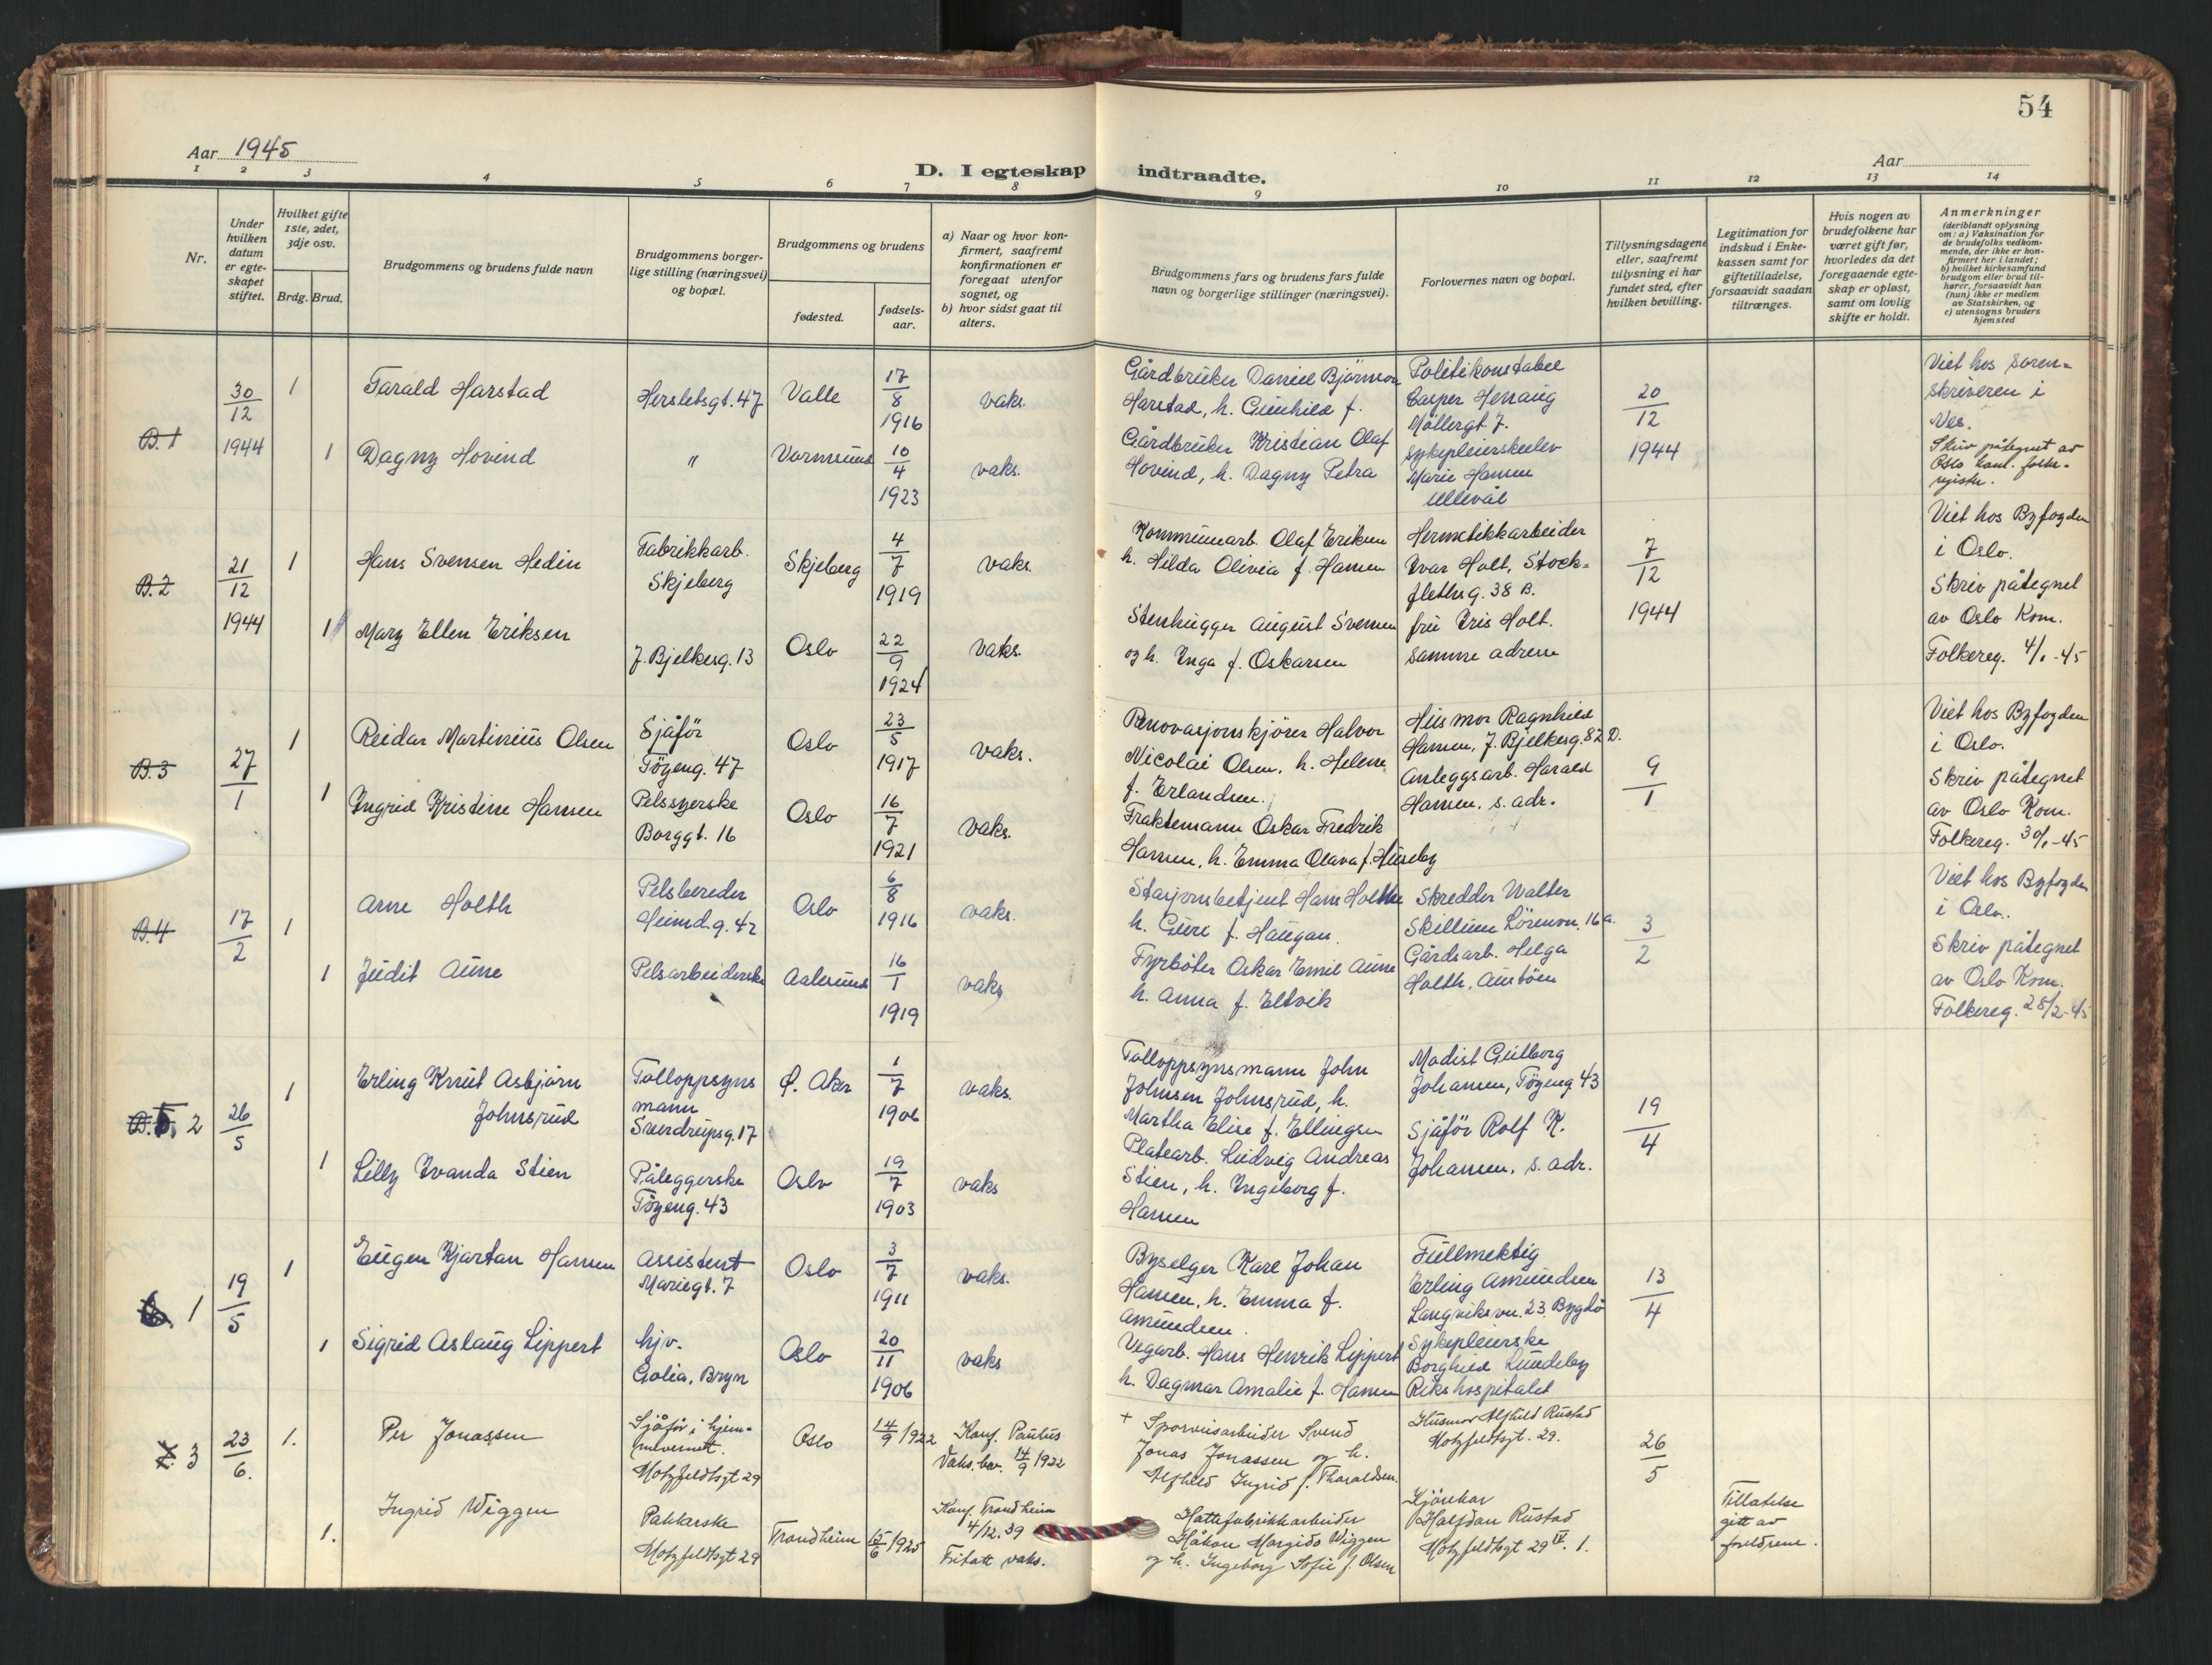 54
Aar 1945
Aar
D. I egteskap indtraadte.
1 2 3 4 5 6 7 8 9 10 11 12 13 14
Nr.
Under
hvilken
datum
er egte-
skapet
stiftet.
Hvilket gifte
1ste, 2det,
3dje osv.
Brdg. Brud.
Brudgommens og brudens fulde navn
Brudgommens borger-
lige stilling (næringsvei)
og bopæl.
Brudgommens og brudens
fødested.
fødsels-
aar.
a) Naar og hvor kon-
firmert, saafremt
konfirmationen er
foregaat utenfor
sognet, og
b) hvor sidst gaat til
alters.
Brudgommens fars og brudens fars fulde
navn og borgerlige stillinger (næringsvei).
Forlovernes navn og bopæl.
Tillysningsdagene
eller, saafremt
tillysning ei har
fundet sted, efter
hvilken bevilling.
Legitimation for
indskud i Enke-
kassen samt for
giftetilladelse,
forsaavidt saadan
tiltrænges.
Hvis nogen av
brudefolkene har
været gift før,
hvorledes da det
foregaaende egte-
skap er opløst,
samt om lovlig
skifte er holdt.
Anmerkninger
(deriblandt oplysning
om: a) Vaksination for
de brudefolks vedkom-
mende, der ikke er kon-
firmert her i landet;
b) hvilket kirkesamfund
brudgom eller brud til-
hører, forsaavidt han
(hun) ikke er medlem
av Statskirken, og
c) utensogns bruders
hjemsted
B.1
30/12
1944
1
Tarald Harstad
Hersletsgt. 47
Valle
17/8
1916
vaks.
Gårdbruker Daniel Bjørnson
Harstad, h. Gunhild f.
Politikonstabel
Casper Henaug
Møllergt 7.
20/12
1944
Viet hos Soren-
skriveren i
Nes.
Skriv påtegnet av
Oslo kom. folke-
register.
1
Dagny Hovind
"
Vormsund
10/4
1923
vaks.
Gårdbruker Kristian Olaf
Hovind, h. Dagny Petra
Sykepleierskeelev
Marie Hansen
Ullevål
B.2
21/12
1944
1
Hans Svensen Hedin
Fabrikkarb.
Skjeberg
Skjeberg
4/7
1919
vaks.
Kommunearb. Olaf Eriksen
h. Hilda Olivia f. Hansen
Hermetikkarbeider
Ivar Holt, Stock-
flethsg. 38 B.
7/12
1944
Viet hos Byfogden
i Oslo.
Skriv påtegnet
av Oslo Kom.
Folkereg. 4/1-45
1
Mary Ellen Eriksen
J. Bjelkesg. 13
Oslo
22/9
1924
vaks.
Stenhugger August Svensen
og h. Inga f. Oskarsen
fru Iris Holt.
samme adresse
B.3
27/1
1
Reidar Martinius Olsen
Sjåfør
Tøyeng. 47
Oslo
23/5
1917
vaks.
Renovasjonskjører Halvor
Nicolai Olsen, h. Helene
f. Erlandsen.
Husmor Ragnhild
Hansen, J. Bjelkesg. 82 D.
Anleggsarb. Harald
Hansen. s. adr.
9/1
Viet hos Byfogden
i Oslo.
Skriv påtegnet
av Oslo Kom.
Folkereg. 30/1-45
1
Ingrid Kristine Hansen
Pelssyerske
Borggt. 16
Oslo
16/7
1921
vaks.
Fraktemann Oskar Fredrik
Hansen, h. Emma Olava f. Huseby
B.4
17/2
1
Arne Holth
Pelsbereder
Heimd.g. 42
Oslo
6/8
1916
vaks.
Stasjonsbetjent Hans Holthe
h. Guri f. Haugan.
Skredder Walter
Skillum Lørenvn. 16 a.
3/2
Viet hos Byfogden
i Oslo.
Skriv påtegnet
av Oslo Kom.
Folkereg. 28/2-45
1
Judit Aune
Pelsarbeiderske
Aalesund
16/1
1919
vaks
Fyrbøter Oskar Emil Aune
h. Anna f. Eltvik
Gårdsarb. Helga
Holth, Austøen
B.5. 2
26/5
1
Erling Knut Asbjørn
Johnsrud
Tolloppsyns
mann
Sverdrupsg. 17
Ø. Aker
1/7
1906
vaks.
Tolloppsynsmann John
Johnsen Johnsrud, h.
Martha Elise f. Ellingsen
Modist Gulborg
Johansen, Tøyeng 43
19/4
1
Lilly Ivanda Stien
Påleggerske
Tøyeng. 43
Oslo
19/7
1903
vaks
Platearb. Ludvig Andreas
Stien, h. Ingeborg f.
Hansen
Sjåfør Rolf K.
Johansen, s. adr.
6. 1
19/5
1
Eugen Kjartan Hansen
Assistent
Mariegt. 7
Oslo
3/7
1911
vaks.
Byselger Karl Johan
Hansen, h. Emma f.
Amundsen.
Fullmektig
Erling Amundsen
Langviksvn. 23 Bygdø
13/4
1
Sigrid Aslaug Lippert
hjv.
Golia, Bryn
Oslo
20/11
1906
vaks
Vegarb. Hans Henrik Lippert
h. Dagmar Amalie f. Hansen
Sykepleierske
Borghild Lundeby
Rikshospitalet
7. 3
23/6.
1.
Per Jonassen
Sjåfør i hjem-
mevernet.
Motzfeldtsgt 29
Oslo
14/9 1922
Konf. Paulus
Vaks. bev. 14/9 1922
+ Sporveisarbeider Svend
Jonas Jonassen og h.
Alfhild Ingrid f. Tharaldsen.
Husmor Alfhild Rustad
Motzfeldtsgt. 29.
26/5
1.
Ingrid Wiggen
Pakkerske
Motzfeldtsgt 29
Trondheim
15/6 1925
Konf. Trondheim
4/12. 39
Fritatt vaks.
Hattefabrikkarbeider
Håkon Margido Wiggen
og h. Ingeborg Sofie f. Olsen
Kjørekar
Halfdan Rustad
Motzfeldtsgt 29 IV. 1.
Tillatelse
gitt av
foreldrene.